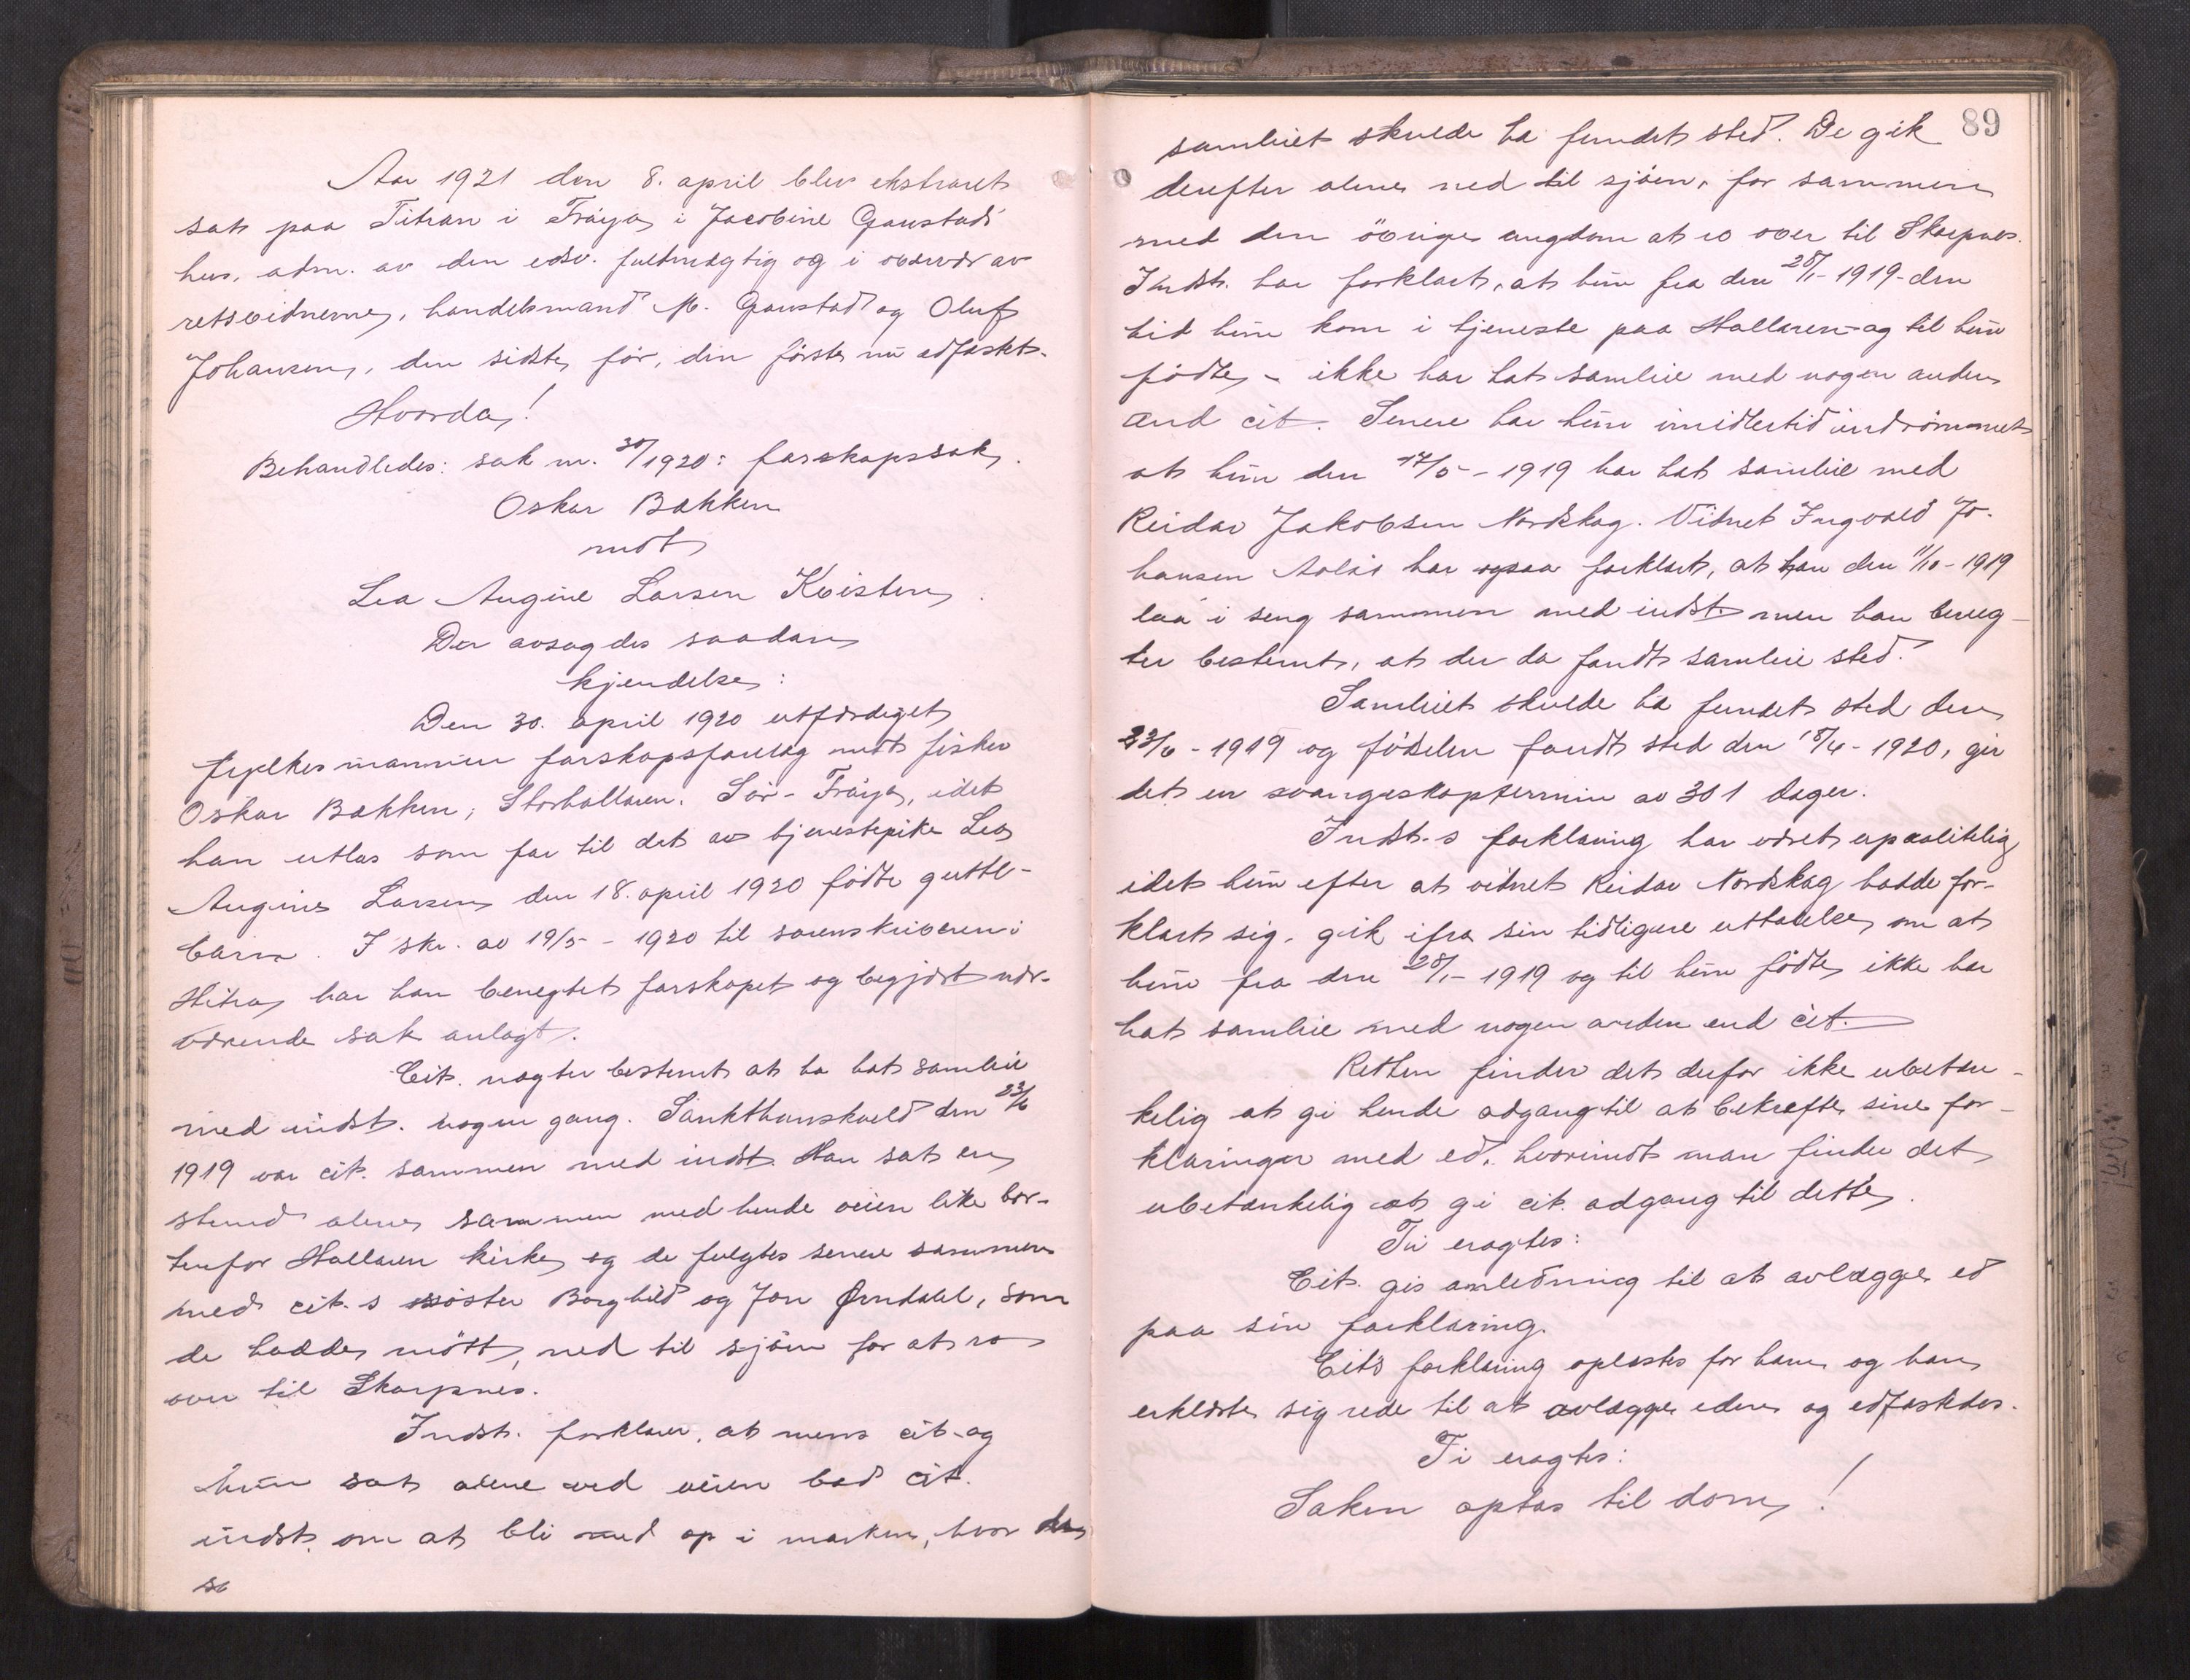 Aar 1921 den 8. april blev ekstraret
sat paa Titran i Fröya i Jacobine Gaustads
hus, adm. av den edsv. fuldmægtig og i overvær av
retsvidnerne, handelsmand M. Gaustad og Oluf
Johansen, den sidste før, den første nu edfæstet.
Hvorda!
Behandledes: sak nr. 30/1920: farskapssak,
Oskar Bakken
mot
Lea Augine Larsen Kvisten.
Der avsagdes saadan
kjendelse:
Den 30. april 1920 utfærdiget
fylkesmannen farskapsforelag mot fisker
Oskar Bakken, Storhallaren, Sör-Fröya, idet
han utlas som far til det av tjenestepike Lea
Augine Larsen den 18. april 1920 fødte guttebarn.
I skr. av 19/5-1920 til sorenskriveren i
Hitra har han benegtet farskapet og begjært nær-
værende sak anlagt.
Cit. nægter bestemt at ha hat samleie
med indst. nogen gang. Sankthanskveld den 23/6
1919 var cit. sammen med indst. Han sat en
stund alene sammen med hende veien like bor-
tenfor Hallaren kirke og de fulgtes senere sammen
med cit.s søster Borghild og Jon Ørndahl, som
de hadde møtt, ned til sjøen for at ro
over til Skarpnes.
Indst. forklarer, at mens cit. og
hun sat alene ved veien bad cit.
indst. om at bli med op i marken, hvor
sa
89
samleiet skulde ha fundet sted. De gik
derefter alene ned til sjøen, for sammen
med den øvrige ungdom at ro over til Skarpnes.
Indst. har forklart, at hun fra den 28/1-1919 - den
tid hun kom i tjeneste paa Hallaren - og til hun
fødte - ikke har hat samleie med nogen anden
end cit. Senere har hun imidlertid indrømmet
at hun den 17/5-1919 har hat samleie med
Reidar Jakobsen Nordskag. Vitnet Ingvald Jo-
hansen har ogsaa forklart, at han den 11/10-1919
laa i seng sammen med indst. men han beneg-
ter bestemt, at der da fandt samleie sted.
Samleiet skulde ha fundet sted den
23/6-1919 og fødselen fandt sted den 18/4-1920, gir
det en svangeskaptermin av 301 dager.
Indst.s forklaring har været upaalitelig
idet hun efter at vitnet Reidar Nordskag hadde for-
klart sig, gik ifra sin tidligere uttalelse om at
hun fra den 28/1-1919 og til hun fødte ikke har
hat samleie med nogen anden end cit.
Retten finder det derfor ikke ubetæn-
kelig at gi hende adgang til at bekræfte sine for-
klaringer med ed, hvorimot man finder det
ubetænkelig at gi cit. adgang til dette.
Ti eragtes:
Cit. gis anledning til at avlægge ed
paa sin forklaring.
Cits forklaring oplæstes for ham og han
erklærte sig rede til at avlægge eden og edfæstedes.
Ti eragtes:
Saken optas til dom!